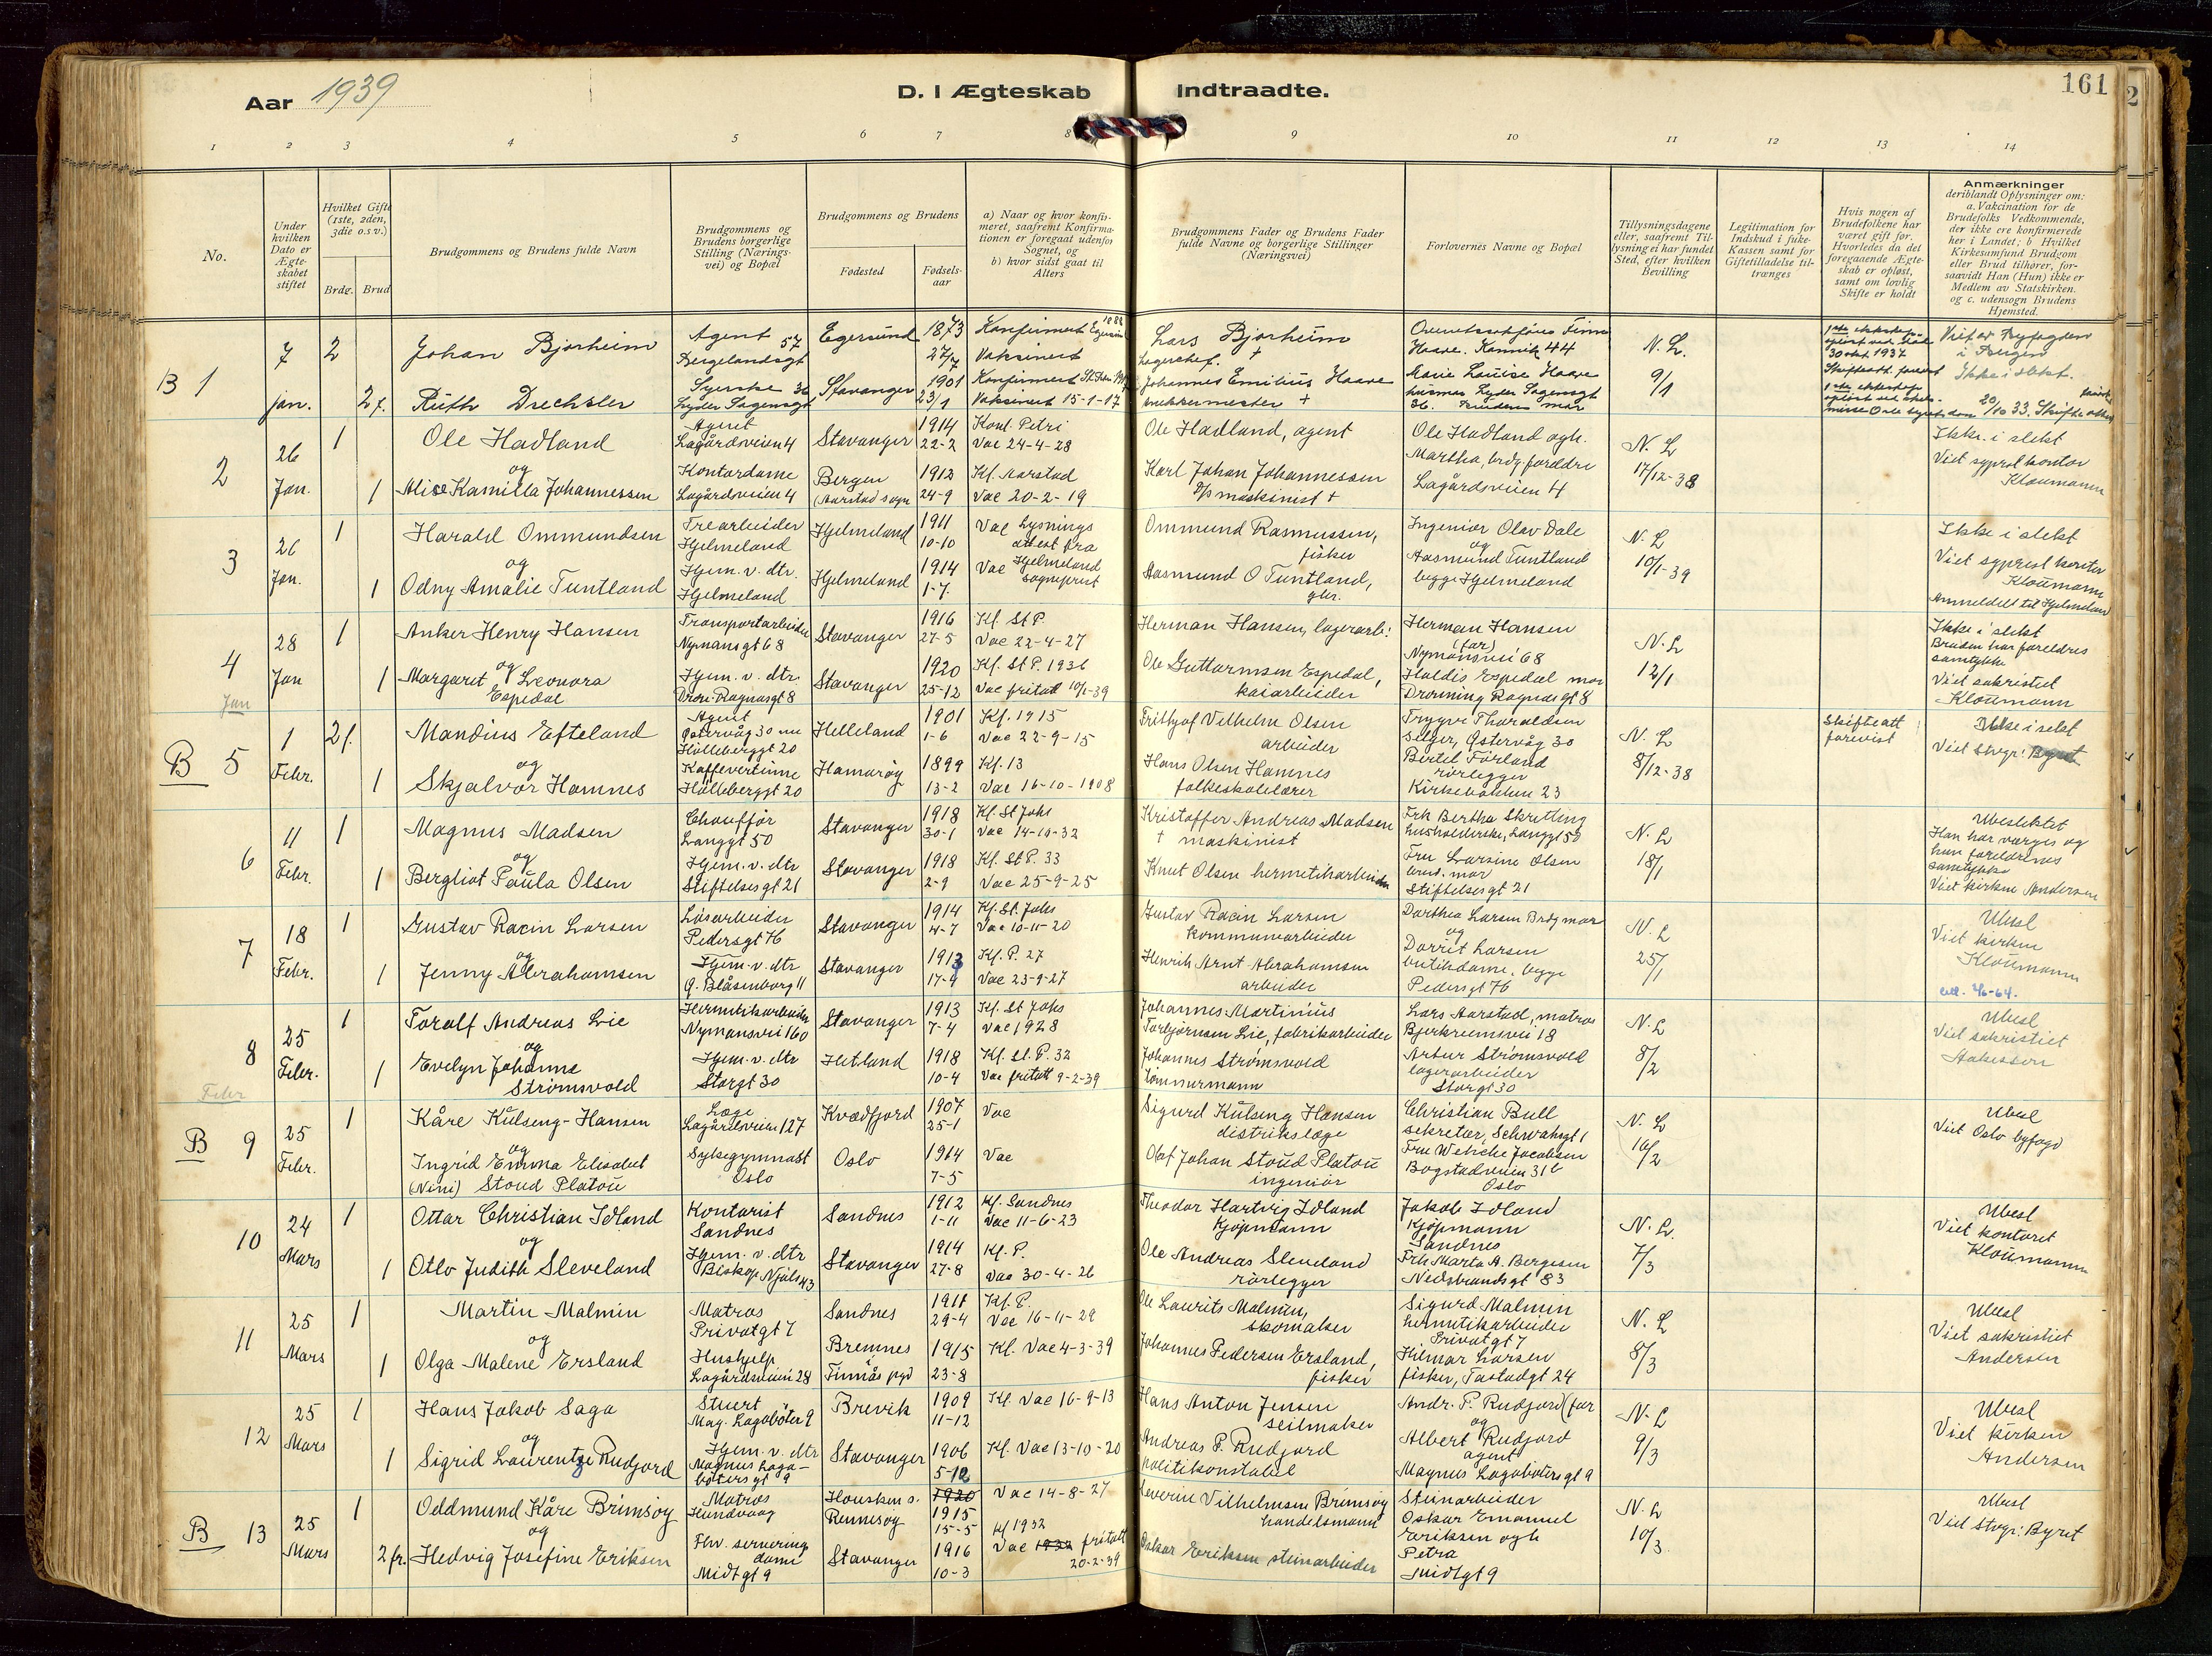 Aar 1939
D. I Ægteskab Indtraadte.
161
2
1 2 3 4 5 6 7 8 9 10 11 12 13 14
No.
Under hvilken Dato er Ægteskabet stiftet
Hvilket Gifte (1ste, 2den, 3die o.s.v.)
Brdg. Brud
Brudgommens og Brudens fulde Navn
Brudgommens og Brudens borgerlige Stilling (Næringsvei) og Bopæl
Brudgommens og Brudens
Fødested
Fødselsaar
a) Naar og hvor konfirmeret, saafremt Konfirmationen er foregaat udenfor Sognet, og b) hvor sidst gaat til Alters
Brudgommens Fader og Brudens Fader fulde Navne og borgerlige Stillinger (Næringsvei)
Forlovernes Navne og Bopæl
Tillysningsdagene eller, saafremt Tillysning ei har fundet Sted, efter hvilken Bevilling
Legitimation for Indskud i Enke-Kassen samt for Giftetilladelse tiltrænges
Hvis nogen af Brudefolkene har været gift før. Hvorledes da det foregaaende Ægteskab er opløst, samt om lovlig Skifte er holdt
Anmærkninger
deriblandt Oplysninger om: a. Vakcination for de Brudefolks Vedkommende, der ikke ere konfirmerede her i Landet; b Hvilket Kirkesamfund Brudgom eller Brud tilhører, forsaavidt Han (Hun) ikke er Medlem av Statskirken. og c. udensogn Brudens Hjemsted.
B 1
7 jan.
2
Johan Bjorheim
Agent 57 Bergelandsgt
Egersund
1873 27/7
Konfirmert Egersund 1888 Vaksinert
Lars Bjorheim † Lagerchef.
Overretssakfører Finn Haave. Kannik 44
N. L. 9/1
1ste ekteskap 30 okt. 1937
Viet av Byfogden i Bergen
Ikke i slekt.
2 f.
Ruth Drechsler
Lyder Sagensgt 36
Stavanger
1901 23/1
Konfirmert St. Petri Vaksinert 15-1-17
Johannes Emilius Haave snekkermester †
Marie Louise Haave husmor Lyder Sagensgt 36. Brudens mor
20/10 33.
2
26 Jan.
1
Ole Hadland
og
Agent Lagårdsveien 4
Stavanger
1914 22-2
Konf. Petri Vac 24-4-28
Ole Hadland, agent
Ole Hadland og h. Martha, brdg. foreldre Lagårdsveien 4
N. L 17/12-38
Ikke i slekt Viet sgprest kontor Kloumann
1
Alise Kamilla Johannessen
Kontordame Lagårdsveien 4
Bergen (Aarstad sogn
1913 24-9
Kf. Aarstad Vac 20-2-19
Karl Johan Johannessen D/S maskinist †
3
26 Jan.
1
Harald Ommundsen
og
Trearbeider Hjelmeland
Hjelmeland
1911 10-10
Vac Lysnings attest fra Hjelmeland sogneprest
Ommund Rasmussen, fisker
Ingeniør Olav Dale og Aasmund Tuntland begge Hjelmeland
N. L 10/1-39
Ikke i slekt Viet sgprest kontor Kloumann Anmeldelt til Hjelmeland
1
Odny Amalie Tuntland
Hjem. v. dtr. Hjelmeland
Hjelmeland
1914 1-7.
Vac
Aasmund O Tuntland, gbr.
4
28 Jan
Jan
1
Anker Henry Hansen
og
Transportarbeider Nymansgt 68
Stavanger
1916 27-5
Kf. St P. Vac 22-4-27
Herman Hansen, lagerarb.
Herman Hansen (far) Nymansvei 68
N. L 12/1
Ikke i slekt Bruden har foreldres samtykke Viet sakristiet Kloumann
1
Margaret Leonora Espedal
Hjem. v. dtr. Dron. Ragnasgt 8
Stavanger
1920 25-12
Kf. St P. 1936 Vac fritatt 10/1-39
Ole Guttormsen Espedal, kaiarbeider
Haldis Espedal mor Dronning Ragnasgt 8
B 5
1 Febr.
2 f.
Mandius Efteland
og
Agent Østervåg 30 nu Hølleberggt 20
Helleland
1901 1-6
Kf. 1915 Vac 22-9-15
Frithjof Vilhelm Olsen arbeider
Trygve Tharaldsen selger, Østervåg 30
N. L 8/12-38
Skifteatt forevist
Ikke i slekt Viet Stvgr: Byrett
1
Skjalvor Hamnes
Kaffevertinne Hølleberggt 20
Hamarøy
1899 13-2
Kf. 13 Vac 16-10-1908
Hans Olsen Hamnes folkeskolelærer
Bertel Førland rørlegger Kirkebakken 23
6
11 Febr.
1
Magnus Madsen
og
Chauffør Langgt 50
Stavanger
1918 30-1
Kf. St Johs Vac 14-10-32
Kristoffer Andreas Madsen † maskinist
Frk Bertha Skretting husholderske, Langgt 50
N. L 18/1
Ubeslektet Han har værges og hun foreldrenes samtykke Viet kirken Andersen
1
Bergliot Paula Olsen
Hjem. v. dtr Stiftelsesgt 21
Stavanger
1918 2-9
Kf. St P. 33 Vac 25-9-25
Knut Olsen hermetikarbeider
Fru Larsine Olsen brud. mor Stiftelsesgt 21
7
18 Febr.
1
Gustav Racin Larsen
og
Løsarbeider Pedersgt 76
Stavanger
1914 4-7
Kf. St. Johs Vac 10-11-20
Gustav Racin Larsen kommunearbeider
Dorthea Larsen Brdg mor og Dorrit Larsen butikdame, begge Pedersgt 76
N. L 25/1
Ubesl Viet kirken Kloumann
1
Jenny Abrahamsen
Hjem. v. dtr Ø. Blåsenborg 11
Stavanger
1913 17-9
Kf. P. 27 Vac 23-9-27
Henrik Arnt Abrahamsen arbeider
8
25 Febr.
Febr
1
Toralf Andreas Lie
og
Hermetikarbeider Nymansvei 160
Stavanger
1913 7-4
Kf. St Johs Vac 1928
Johannes Martinius Torbjørnsen Lie, fabrikarbeider
Lars Aarstad, matros Bjerkreimsvei 18
N. L 8/2
Ubesl Viet sakristiet Aakesson
1
Evelyn Johanne Strømsvold
Hjem. v. dtr Storgt 30
Hetland
1918 10-4
Kf. St. P. 32 Vac fritatt 9-2-39
Johannes Strømsvold tømmermann
Artur Strømsvold lagerarbeider Storgt 30
B 9
25 Febr.
1
Kåre Kulseng-Hansen
og
Læge Lagårdsveien 127
Kvædfjord
1907 25-1
Vac
Sigurd Kulseng Hansen distrikslæge
Christian Bull sekretær, Schwahsgt 1
N. L 16/2
Ubesl Viet Oslo byfogd
Ingrid Emma Elisabet (Nini) Stoud Platou
Sykegymnast Oslo
Oslo
1914 7-5
Vac
Olaf Johan Stoud Platou ingeniør
Fru Wibiche Jacobsen Bogstadveien 31 b Oslo
10
24 Mars
1
Ottar Christian Idland
og
Kontorist Sandnes
Sandnes
1912 1-11
Kf. Sandnes Vac 11-6-23
Theodor Hartvig Idland Kjøpmann
Jakob Idland Kjøpmann Sandnes
N. L. 7/3
Ubesl Viet kontoret Kloumann
1
Otlo Judith Sleveland
Hjem. v. dtr Biskop Njåls 43
Stavanger
1914 27-8
Kf. P. Vac 30-4-26
Ole Andreas Sleveland rørlegger
Frk Marta A. Bergesen Nedstrandsgt 83
11
25 Mars
1
Martin Malmin
og
Matros Privatgt 7
Sandnes
1911 29-4
Kf. P. Vac 16-11-29
Ole Laurits Malmin, skomaker
Sigurd Malmin hermetikarbeider Privatgt 7
N. L 8/3
Ubesl Viet sakristiet Andersen
1
Olga Malene Ersland
Hushjelp Lagårdsveien 28
Bremnes Finnås pgd
1915 23-8
Kf. Vac 4-3-39
Johannes Pedersen Ersland, fisker
Hilmar Larsen fisker, Tastadgt 24
12
25 Mars
1
Hans Jakob Saga
og
Stuert Mag. Lagabøter 9
Brevik
1909 11-12
Kf. Vac 16-9-13
Hans Anton Jensen seilmaker
Andr. P. Rudjord (far og
N. L 9/3
Ubesl Viet kirken Andersen
1
Sigrid Laurentze Rudjord
Hjem. v. dtr Magnus Lagabøters gt 9
Stavanger
1906 5-12
Kf. Vac 13-10-20
Andreas P. Rudjord politikonstabel
Albert Rudjord agent Magnus Lagabøters gt 9
B 13
25 Mars
1
Oddmund Kåre Brimsøy
og
Matros Hundvaag
Hausken s. Rennesøy
1920 1915 15-5
Vac 14-8-27
Severin Vilhelmsen Brimsøy handelsmann
Steinarbeider Oskar Emanuel Eriksen og h Petra Midtgt 9
N. L 10/3.
Ubesl Viet Stvgr: Byret
2 fr.
Hedvig Josefine Eriksen
Fhv. serveringdame Midtgt 9
Stavanger
1916 10-3
Kf 1932 Vac 1932 fritatt 20-2-39
Oskar Eriksen steinarbeider